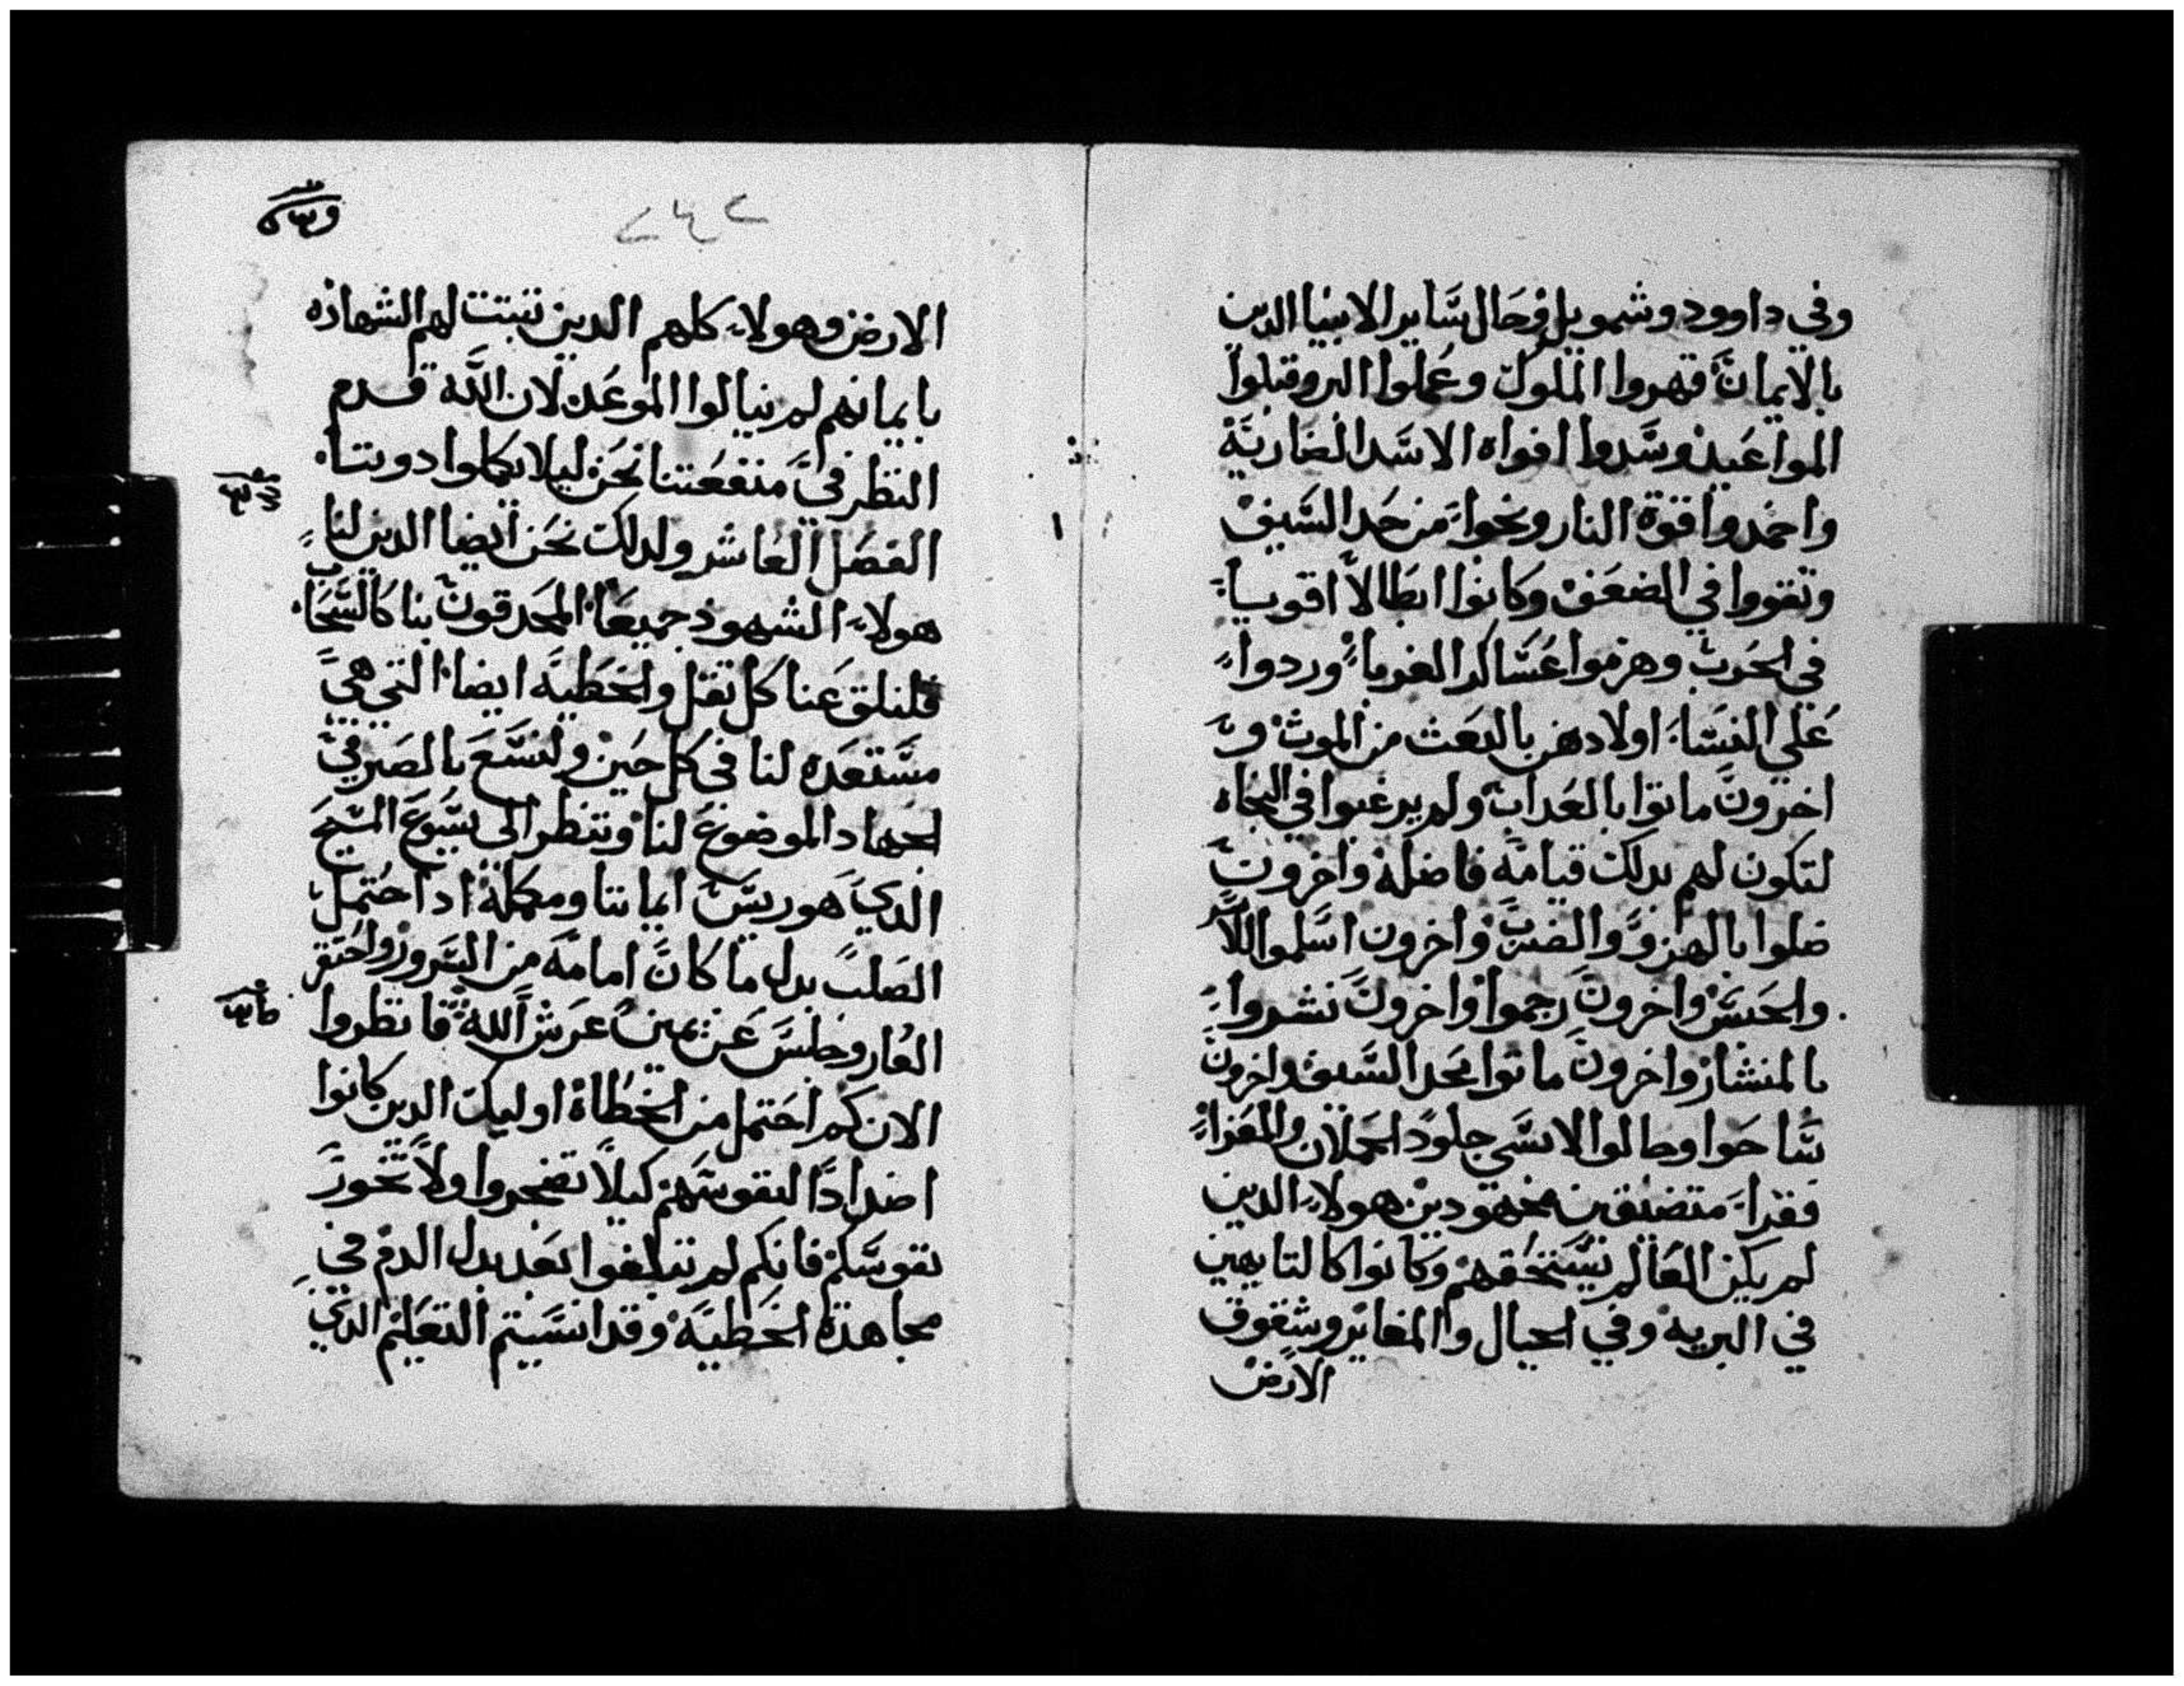 وفي داوود وشمويل وفي حال ساير الانبيا الدين
بالايمان قهروا الملوك وعملوا البر وقبلوا
المواعيد وسدوا افواه الاسد الضاريه
واخمدوا قوة النار ونجوا من حد السيف
وتقووا في الضعف وكانوا ابطالا اقويا
في الحرب وهزموا عساكر الغربا وردوا
على النسا اولادهن بالبعث من الموت و
اخرون ماتوا بالعداب ولم يرغبوا في النجاه
لتكون لهم بدلك قيامه فاضله واخرون
ضلوا بالهزو والضرب واخرون اسلموا
والحبس واخرون رجموا واخرون نشروا
بالمنشار واخرون ماتوا بحد السيف واخرون
ساحوا وطالوا الاسى جلود الحملان والمعزا
فقرا متضيقين مجهودين هولاء الدين
لم يكن العالم يستحقهم وكانوا كالتايهين
في البريه وفي الجبال والمغاير وشقوق
الارض
الارض وهولاء كلهم الدين تبتت لهم الشهاده
بايمانهم لم ينالوا الموعد لان الله قدم
النظر في منفعتنا نحن ليلا يكملوا دوننا
الفصل العاشر ولدلك نحن ايضا الدين لنا
هولاء الشهود جميعا المحدقون بنا كالسحاب
فلنلق عنا كل تقل والخطيه ايضا التي هي
مستعده لنا في كل حين ولنسع بالصبر في
الجهاد الموضوع لنا وننظر الى يسوع المسيح
الدي هو ريس ايماننا ومكمله اد احتمل
الصلب بدل ما كان امامه من السرور واحتقر
العار وجلس عن يمين عرش الله فانظروا
الان كم احتمل من الخطاة اوليك الدين كانوا
اضدادا لنفوسهم كيلا تضجروا ولا تخور
نفوسكم فانكم لم تبلغوا بعد بدل الدم في
مجاهدة الخطيه وقد انسيتم التعليم الدي